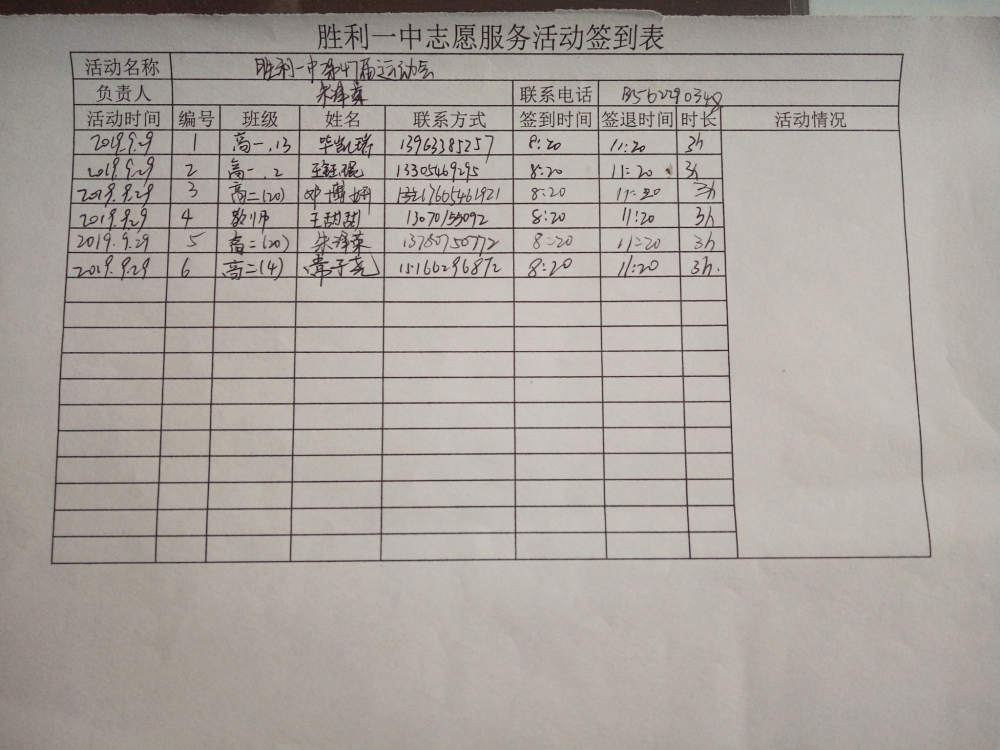 胜利一中志愿服务活动签到表
活动名称 胜利一中第47届运动会
负责人 朱泽菜 联系电话
活动时间 编号 班级 姓名 联系方式 签到时间 签退时间 时长 活动情况
2019.9.29 1 高一.13 毕凯瑞 13963385257 8:20 11:20 3h
2019.9.29 2 高一.2 13305469295 8:20 11:20 3h
2019.9.29 3 高二(20) 邓博妍 17605461921 8:20 11:20 3h
2019.9.29 4 教师 王甜甜 13070155092 8:20 11:20 3h
2019.9.29 5 高二(20) 朱泽菜 13780750772 8:20 11:20 3h
2019.9.29 6 高二(4) 常子尧 15166296872 8:20 11:20 3h.